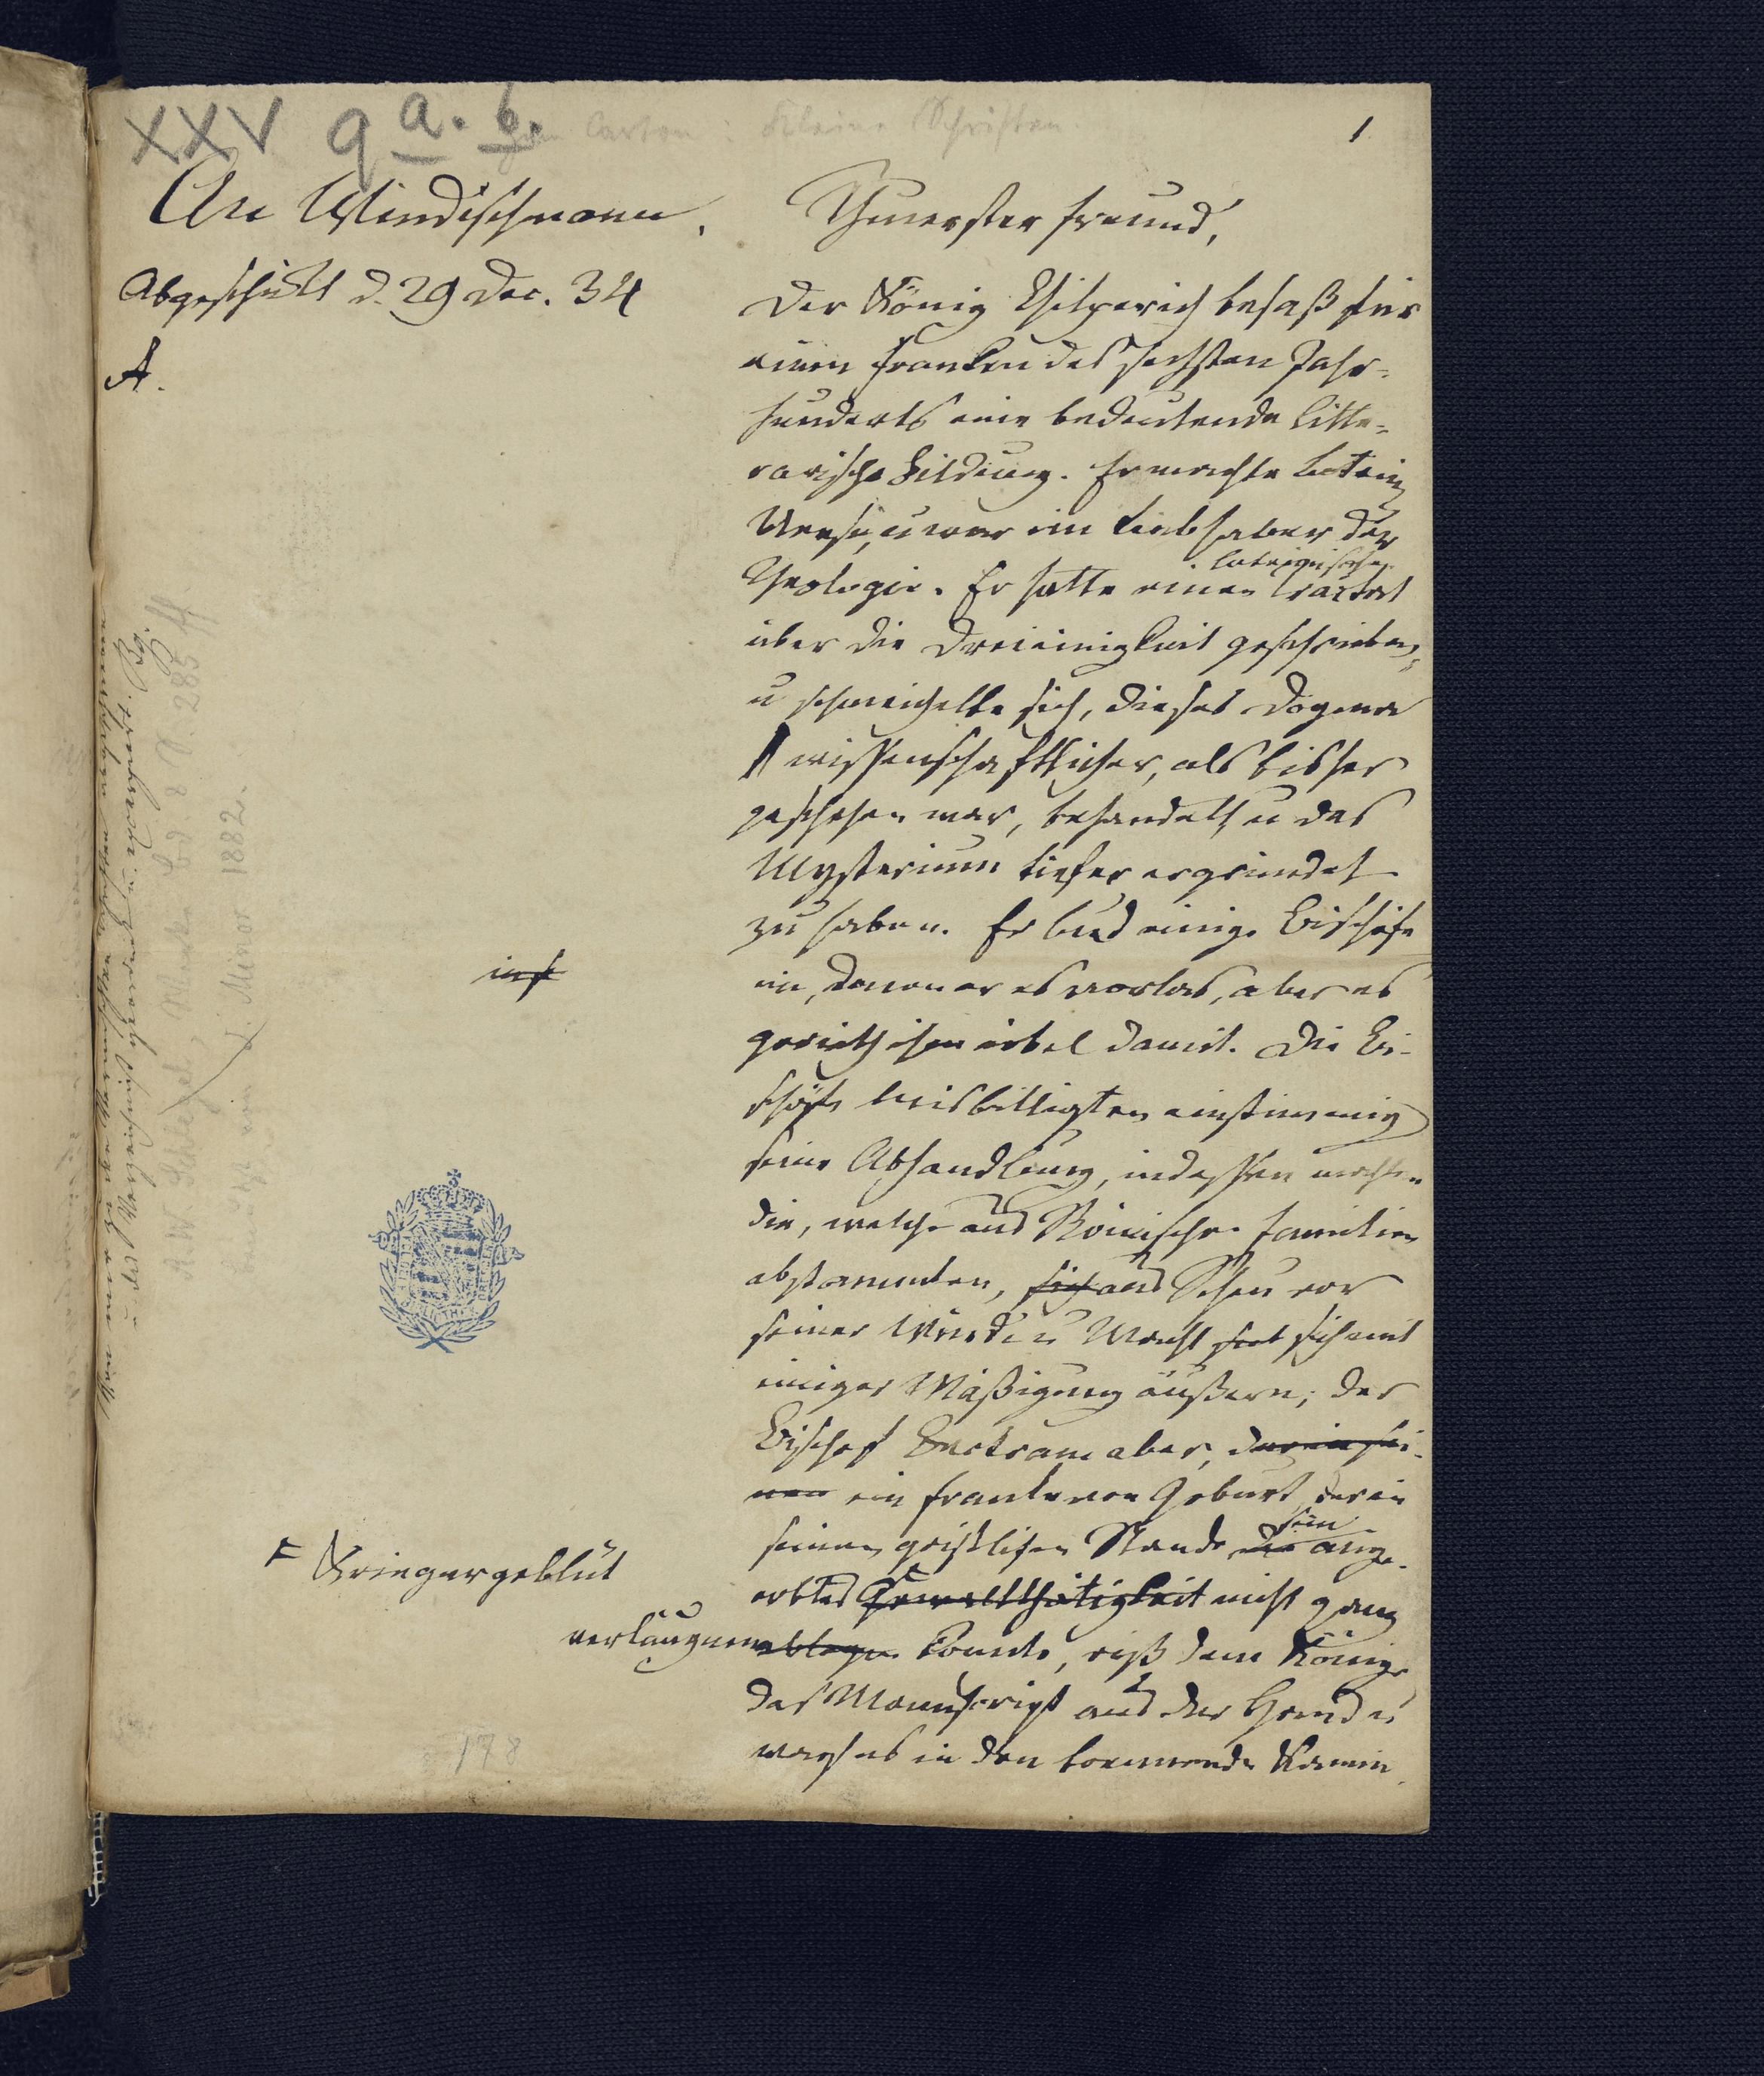 XXV 9 a. b.
Carton: Kleine Schriften.
1
An Windischmann.
Abgeschickt d. 29 Dec. 34
A.
Theuerster Freund,
Der König Chilperich besaß für
einen Franken des sechsten Jahr-
hunderts eine bedeutende litte-
rarische Bildung. Er machte Latein.
Verse, u war ein Liebhaber der
Theologie. Er hatte einen lateinischen Tractat
über die Dreieinigkeit geschrieben,
u schmeichelte sich, dieses Dogma
wissenschaftlicher, als bisher
geschehen war, behandelt, u das
Mysterium tiefer ergründet
zu haben. Er lud einige Bischöfe
ein, denen er es vorlas, aber es
gerieth ihm übel damit. Die Bi-
schöfe misbilligten einstimmig
seine Abhandlung, indessen mochten
die, welche aus Römischen Familien
abstammten, sich aus Scheu vor
seiner Würde u Macht sich mit
einiger Mäßigung äußern; der
Bischof Bertram aber,
ein Franke von Geburt, der in
seinem geistlichen Stande sein ange-
erbtes Gewaltthätigkeit nicht ganz
ablegen konnte, riß dem Könige
das Manuscript aus der Hand u
warf es in den brennenden Kamin.
F Kriegergeblüt
verläugnen
A. W. Schlegel, Werke Bd. 8 S. 285 ff
J. Minor 1882.
178